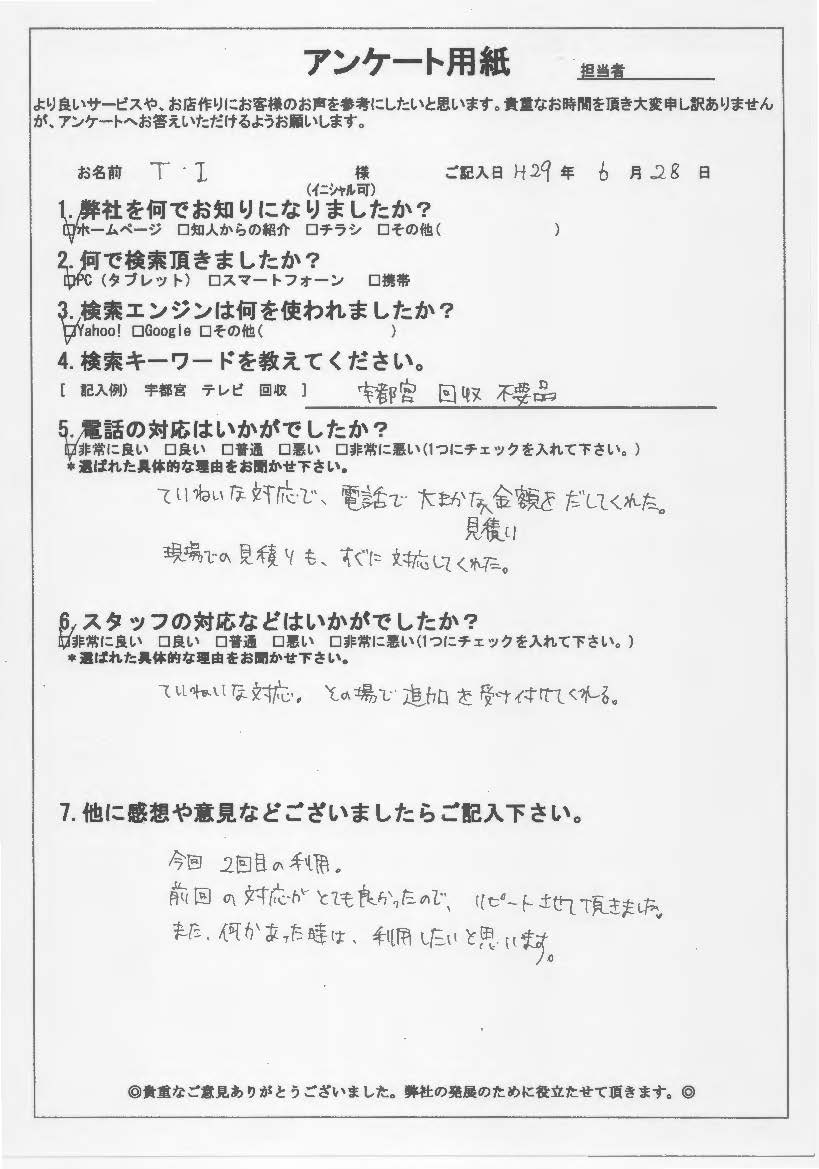 アンケート用紙
担当者
より良いサービスや、お店作りにお客様のお声を参考にしたいと思います。貴重なお時間を頂き大変申し訳ありません
が、アンケートへお答えいただけるようお願いします。
お名前 T・I 様 ご記入日 H29 年 6 月 28 日
(イニシャル可)
1. 弊社を何でお知りになりましたか？
☑ホームページ □知人からの紹介 □チラシ □その他( )
2. 何で検索頂きましたか？
☑PC（タブレット） □スマートフォーン □携帯
3. 検索エンジンは何を使われましたか？
☑Yahoo! □Google □その他( )
4. 検索キーワードを教えてください。
[ 記入例） 宇都宮 テレビ 回収 ] 宇都宮 回収 不要品
5. 電話の対応はいかがでしたか？
☑非常に良い □良い □普通 □悪い □非常に悪い(1つにチェックを入れて下さい。)
＊選ばれた具体的な理由をお聞かせ下さい。
ていねいな対応で、電話で大まかな金額をだしてくれた。
見積り
現場での見積りも、すぐに対応してくれた。
6. スタッフの対応などはいかがでしたか？
☑非常に良い □良い □普通 □悪い □非常に悪い(1つにチェックを入れて下さい。)
＊選ばれた具体的な理由をお聞かせ下さい。
ていねいな対応。その場で追加を受け付けてくれる。
7. 他に感想や意見などございましたらご記入下さい。
今回 2回目の利用。
前回の対応がとても良かったので、リピートさせて頂きました。
また、何かあった時は、利用したいと思います。
◎貴重なご意見ありがとうございました。弊社の発展のために役立たせて頂きます。◎